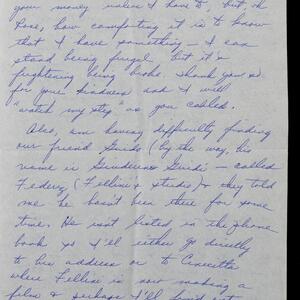 your money unless I have to, but, oh
Rose, how comforting it is to know
that I have something – I can
stand being frugal but it's
frightening being broke. Thank you so
for your kindness and I will
"watch my step" as you cabled.
Also, am having difficulty finding
our friend Guido (by the way, his
name is Guidi – called
Federiz (Fellini's studio) & they told
me he hasn't been there for some
time. He isn't listed in the phone
book so I'll either go directly
to his address or to Cinecitta
where Fellini is now making a
film & perhaps I'll find out